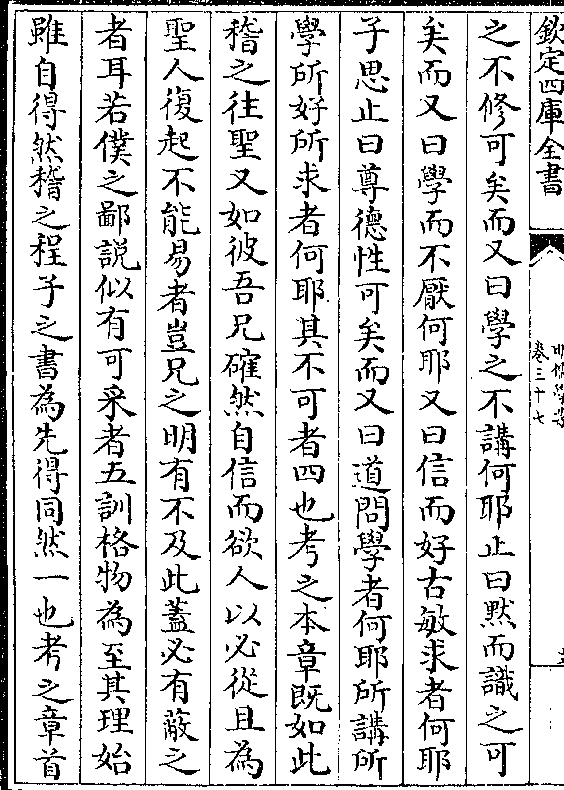 欽定四庫全書
明儒學案
卷三十七
之不修可矣而又曰學之不講何耶止曰黙而識之可
矣而又曰學而不厭何耶又曰信而好古敏求者何耶
子思止曰尊德性可矣而又曰道問學者何耶所講所
學所好所求者何耶其不可者四也考之本章既如此
稽之往聖又如彼吾兄確然自信而欲人以必從且為
聖人復起不能易者豈兄之明有不及此蓋必有蔽之
者耳若僕之鄙説似有可采者五訓格物為至其理始
雖自得然稽之程子之書為先得同然一也考之章首